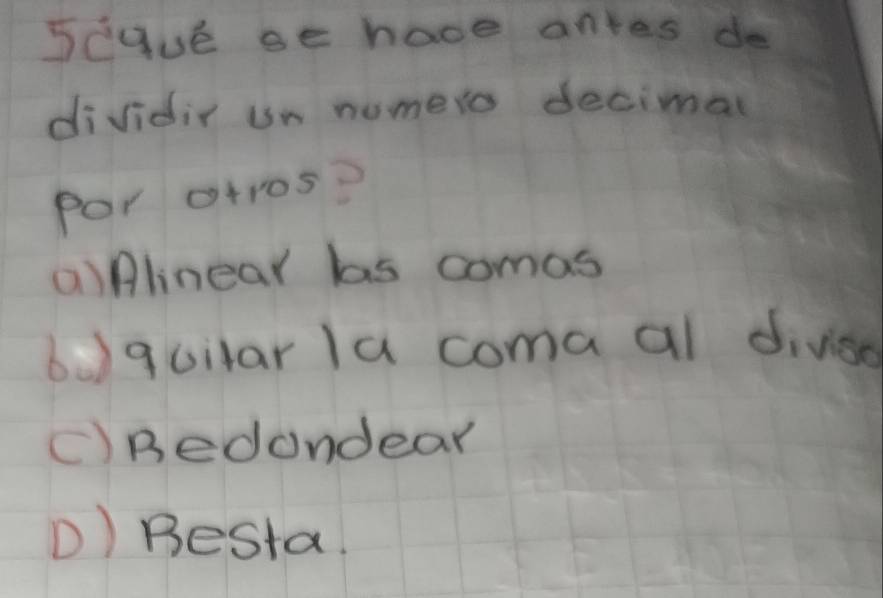 5¿qué se hace antes de
dividir un numero decimal
por otros?
a) Alinear las comas
b) quitar la coma al diviso
c) Redondear
D) Resta.